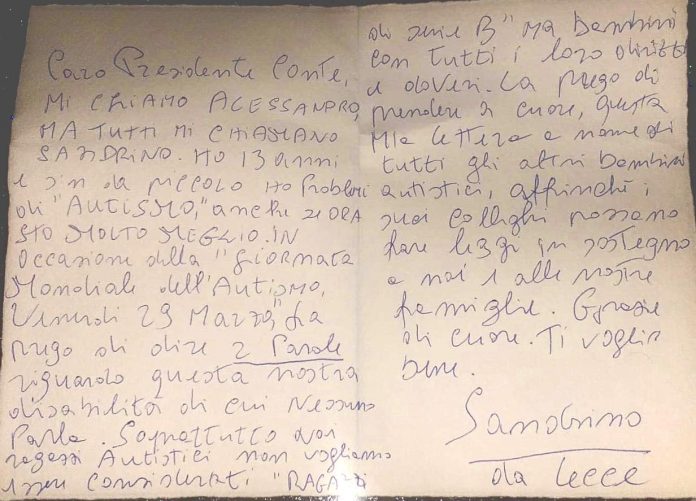 Caro Presidente Conte,
MI CHIAMO ALESSANDRO,
MA TUTTI MI CHIAMANO
SANDRINO. HO 13 anni
e sin da piccolo HO Problemi
di "AUTISMO," anche se ORA
STO MOLTO MEGLIO. IN
occasione della "Giornata
Mondiale dell'Autismo,
Venerdì 29 Marzo," La
prego di dire 2 Parole
riguardo questa nostra
disabilità di cui Nessuno
Parla. Soprattutto noi
ragazzi Autistici non vogliamo
essere considerati "RAGAZZI
di serie B" MA bambini
con tutti i loro diritti
e doveri. La prego di
prendere a cuore, questa
Mia lettera a nome di
tutti gli altri bambini
autistici, affinché i
suoi colleghi possano
fare leggi in sostegno
a noi e alle nostre
famiglie. Grazie
di cuore. Ti voglio
bene.
Sandrino
da Lecce